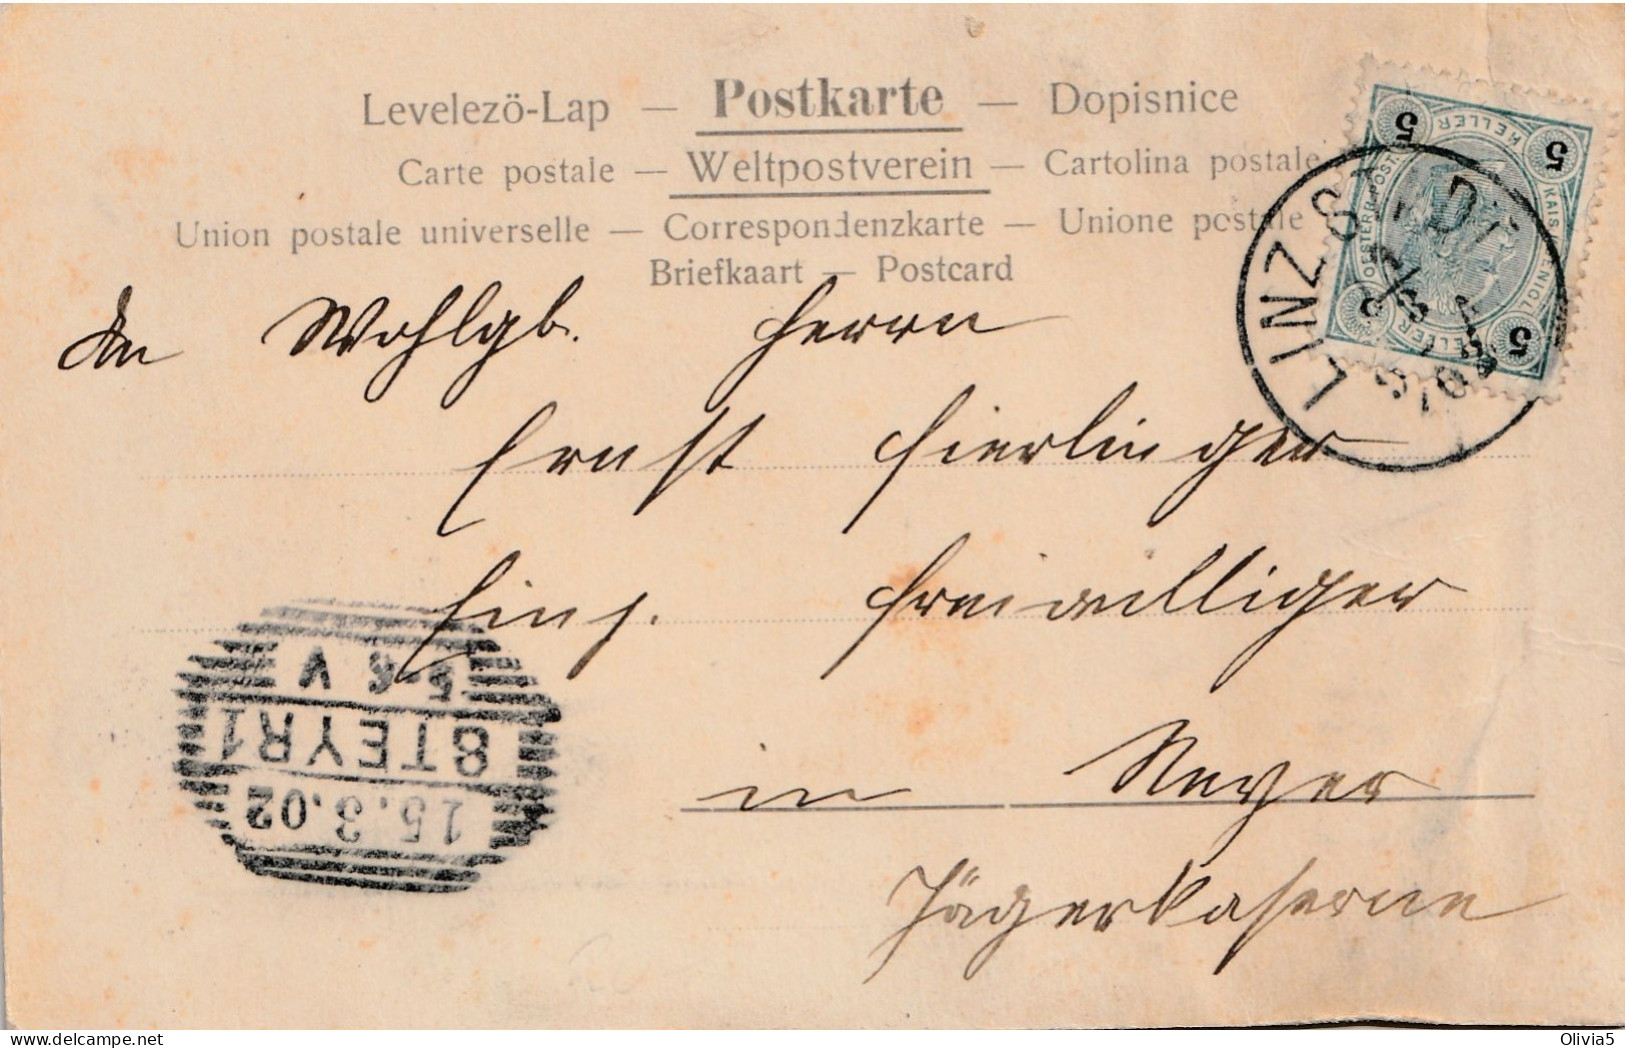 Levelezö-Lap — Postkarte — Dopisnice
Carte postale — Weltpostverein — Cartolina postale
Union postale universelle — Correspondenzkarte — Unione postale
Briefkaart — Postcard
An Wohlgb. Herrn
Ernst Hierlinger
Einj. Freiwilliger
in Steyer
Jägerkaserne
5 5 5
HELLER
LINZ STADT
15.3.02
STEYR 1
5-6 V
Olivia5